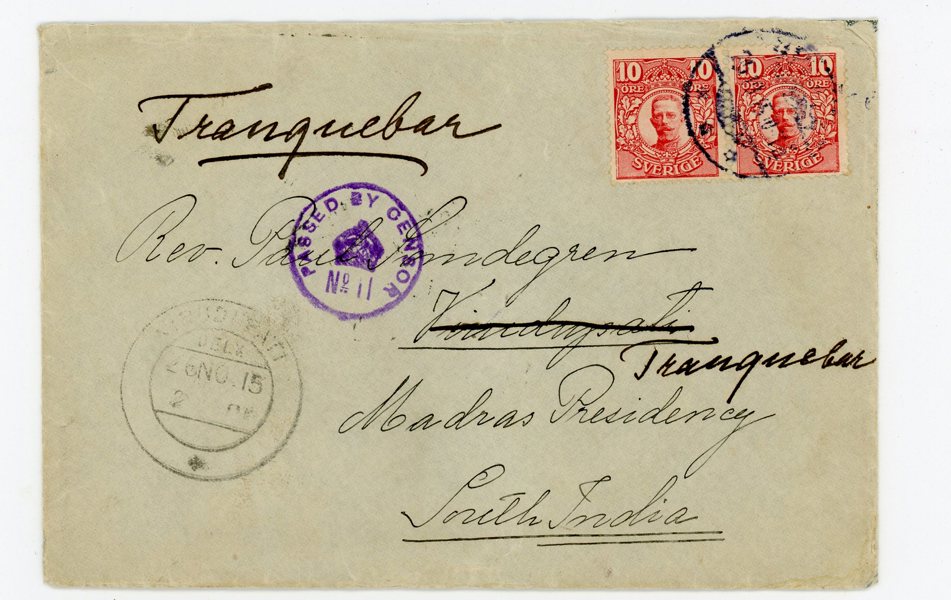 10 10
ÖRE ÖRE
SVERIGE
10 10
ÖRE
SVERIGE
Tranquebar
PASSED BY CENSOR
Nº 11
Rev. Paul Sandegren
Tranquebar
Madras Presidency
South India
DELY
26 NO. 15
2